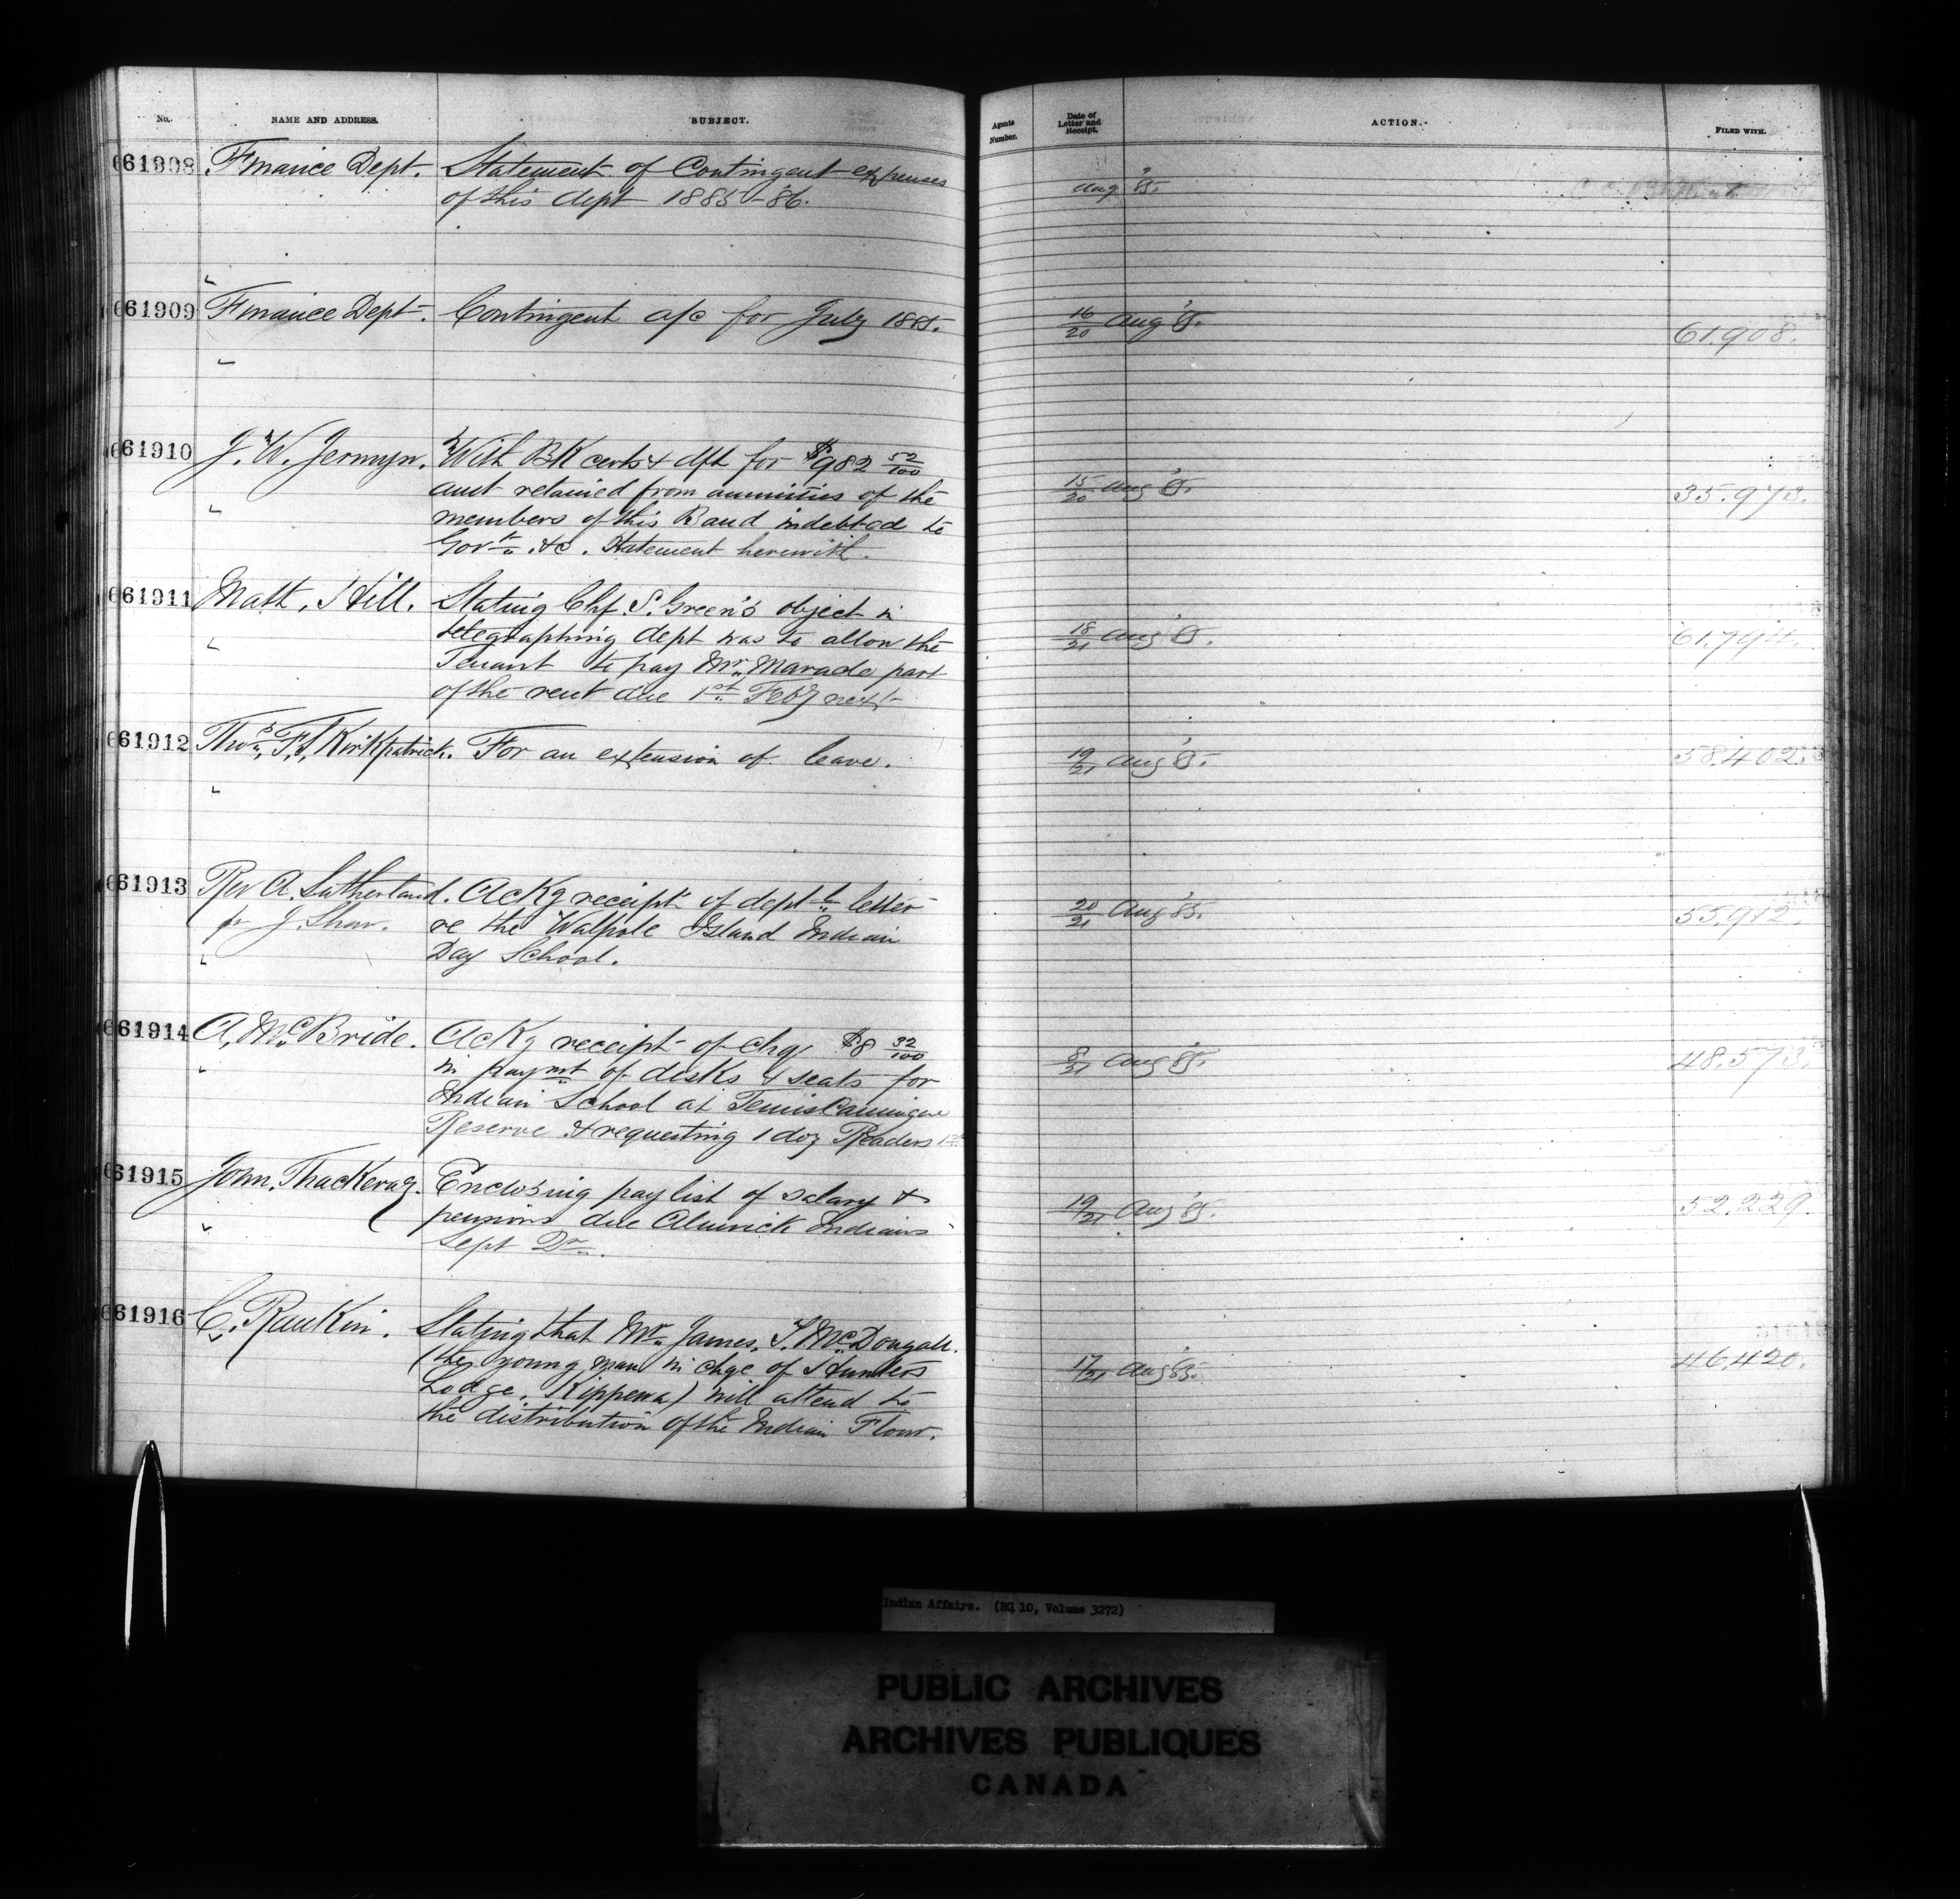 No. NAME AND ADDRESS. SUBJECT. Agents Number. Date of Letter and Receipt. ACTION. FILED WITH.
61908 Finance Dept. Statement of Contingent expenses Aug '85.
of this dept 1885-86.
61909 Finance Dept. Contingent a/c for July 1885. 16/20 Aug '85. 61.908.
61910 J. W. Jermyn. With BK certs & dft for $982 52/100 15/20 Aug '85. 35.973.
amt retained from annuities of the
members of this Band indebted to
Govt. &c. Statement herewith.
61911 Matt. Hill. Stating Chf. S. Green's object in 18/21 Aug '85. 61.794.
telegraphing dept was to allow the
Tenant to pay Mr. part
of the rent due 1st Feby next
61912 Thos. F. Kirkpatrick. For an extension of leave. 19/21 Aug '85. 58.402.
61913 Rev A. Sutherland. Ackg receipt of deptl letter 20/21 Aug '85. 55.912.
pr J. Shaw. re the Walpole Island Indian
Day School.
61914 A. McBride. Ackg receipt of chq $8 32/100 8/21 Aug '85. 48.573.
in paymt of desks & seats for
Indian School at Temiscamingue
Reserve & requesting 1 doz Readers
61915 John Thackeray. Enclosing pay list of salary & 19/21 Aug '85. 52.229.
pensions due Alnwick Indians
Sept Qr.
61916 C. Rankin. Stating that Mr. James. T. McDougall. 17/21 Aug '85. 46.420.
(the young man in chge of Hunters
Lodge, Kippewa) will attend to
the distribution of the Indian Flour.
Indian Affairs. (RG 10, Volume 3272)
PUBLIC ARCHIVES
ARCHIVES PUBLIQUES
CANADA